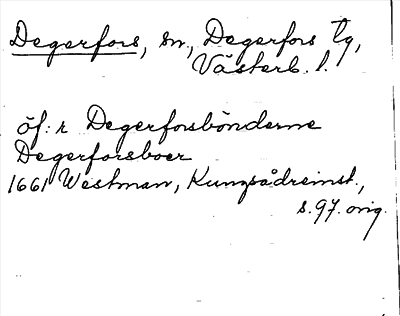 Degerfors, sn, Degerfors tg,
Västerb. l.
öf: r Degerforsbönderne
Degerforsboer
1661 Westman, Kungsådreinst.,
s. 97. orig.